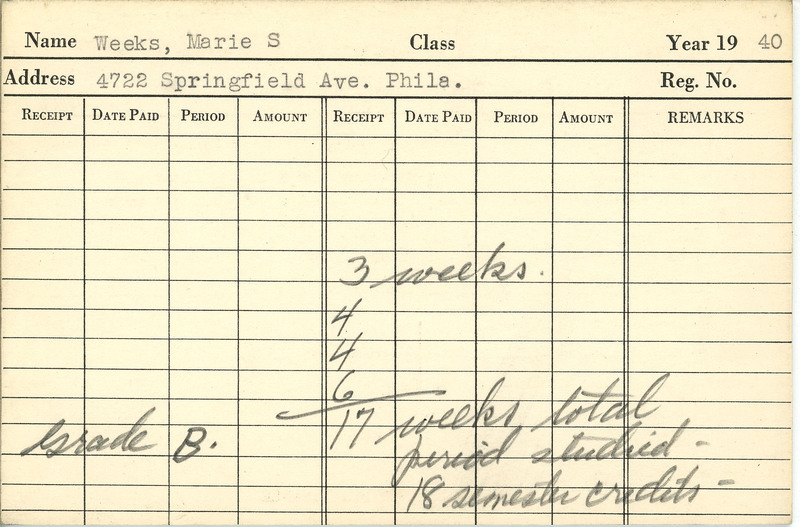 Name Weeks, Marie S Class Year 19 40
Address 4722 Springfield Ave. Phila. Reg. No.
RECEIPT DATE PAID PERIOD AMOUNT RECEIPT DATE PAID PERIOD AMOUNT REMARKS
3 weeks.
4
4
6
17 weeks total
Grade B. period studied -
18 semester credits -